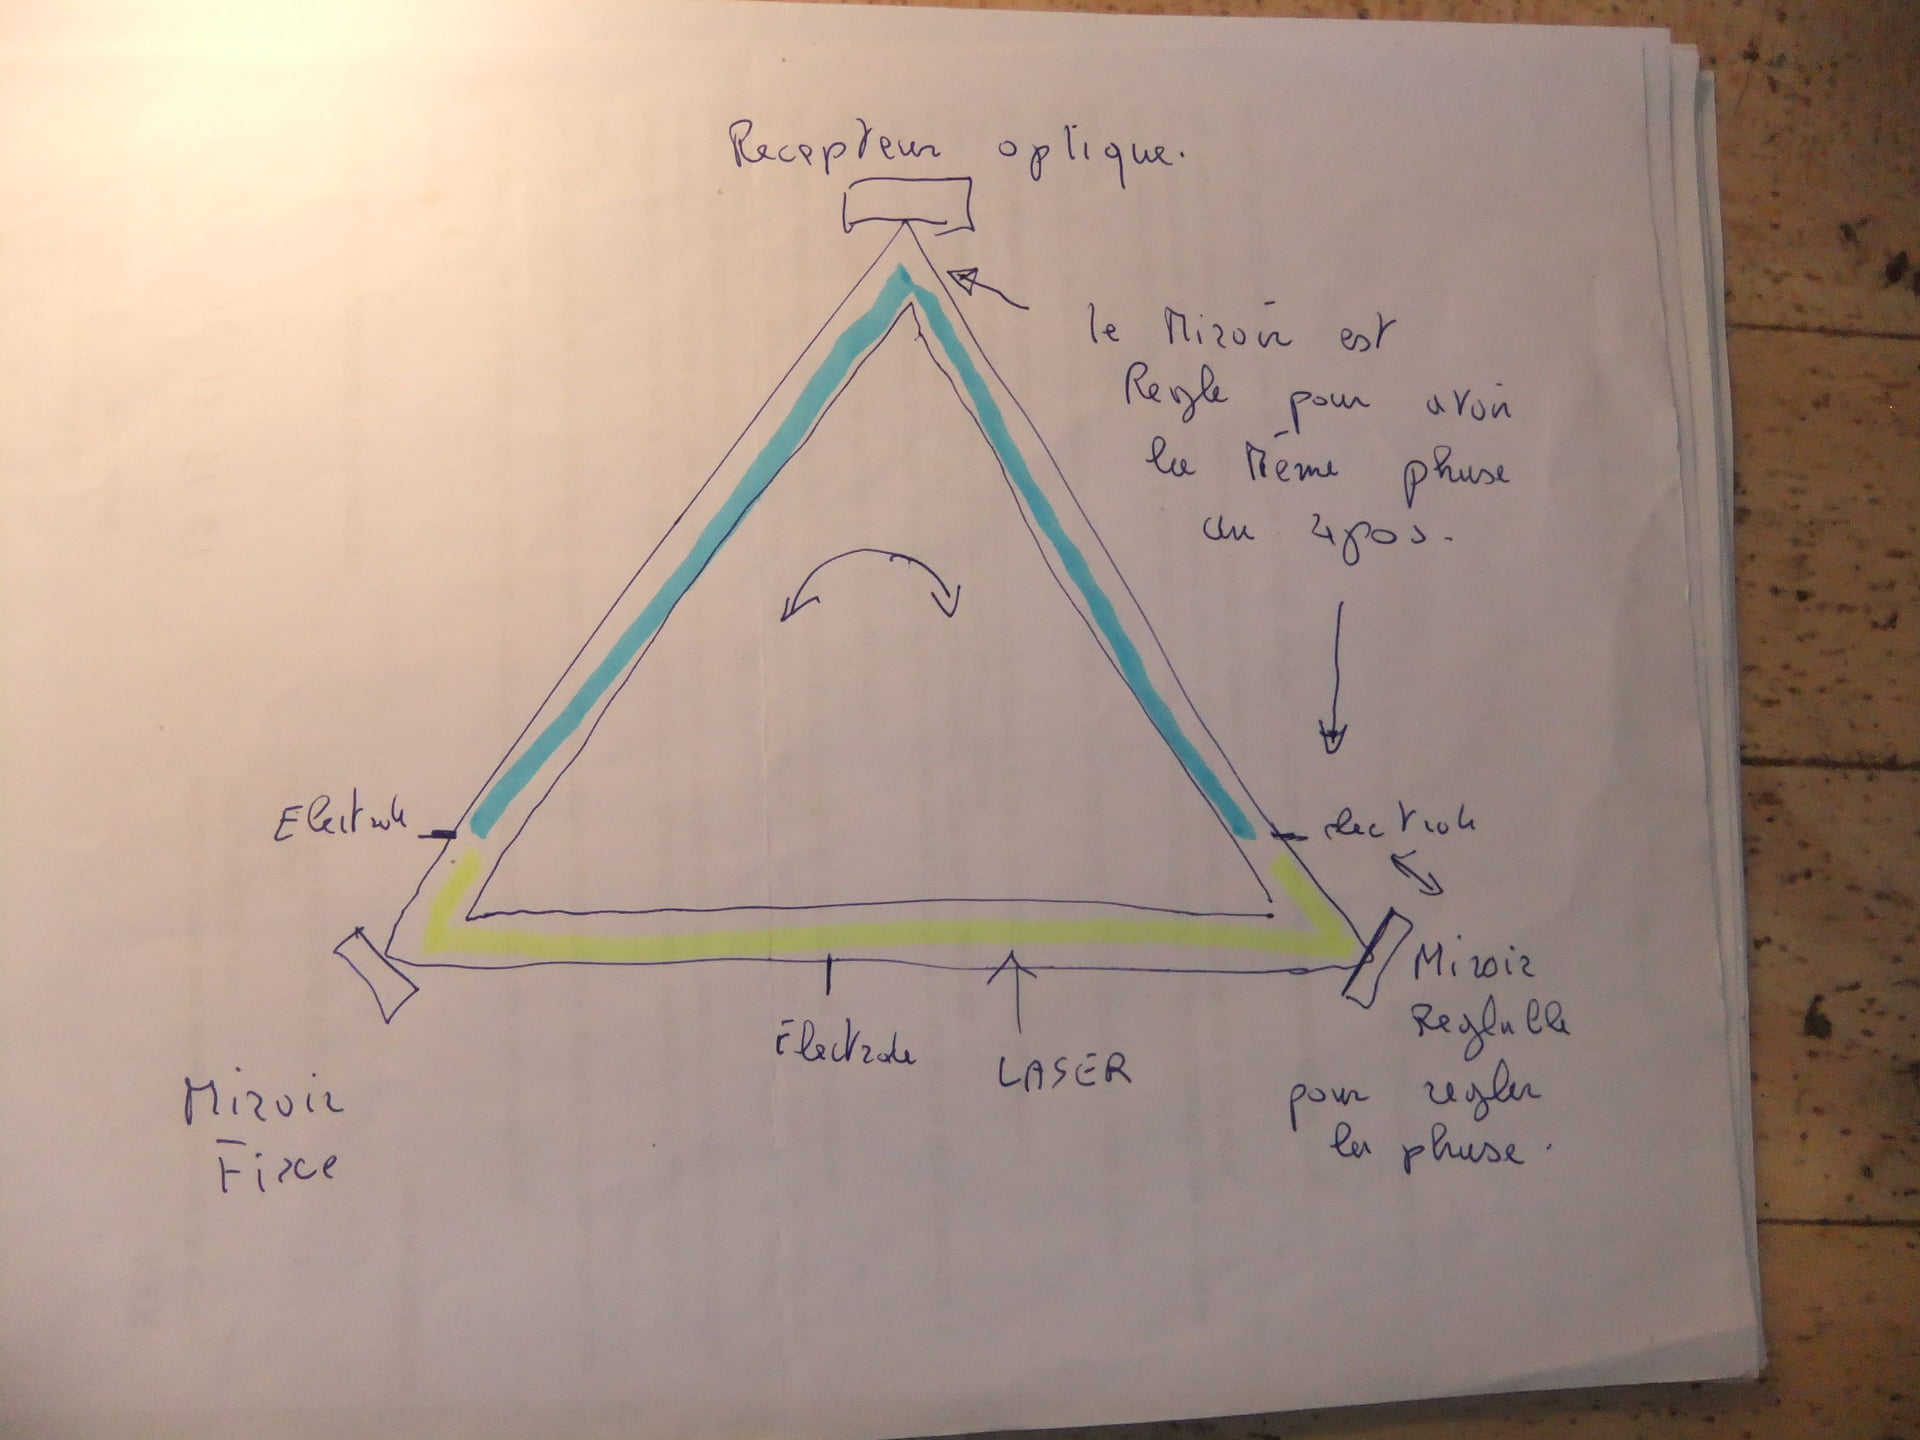 Recepteur optique.
le Miroir est
Regle pour avoir
la Même phase
au repos.
Electrode
electrode
Electrode
LASER
Miroir
Reglable
pour regler
la phase.
Miroir
Fixe